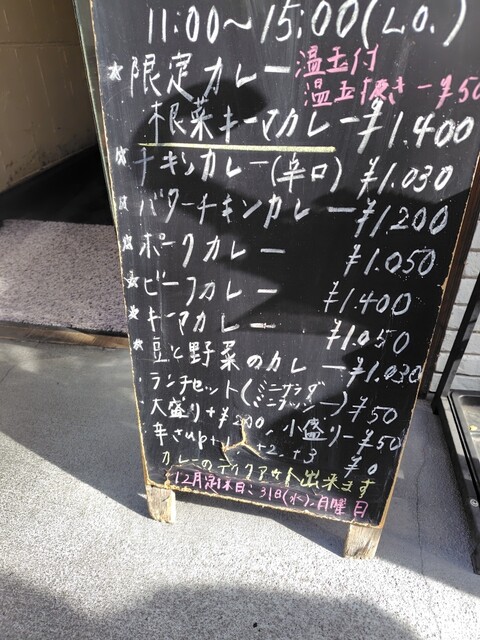 11:00〜15:00(L.O.)
★限定カレー 温玉付
温玉抜き-¥50
根菜キーマカレー ¥1.400
☆チキンカレー(辛口) ¥1.030
☆バターチキンカレー ¥1.200
☆ポークカレー ¥1.050
☆ビーフカレー ¥1.400
☆キーマカレー ¥1.050
☆豆と野菜のカレー ¥1.030
・ランチセット(ミニサラダ
ミニラッシー) ¥50
・大盛り+¥200、小盛り-¥50
・辛さup+1 +2 +3 ¥0
カレーのテイクアウト出来ます
12月定休日:31日(水)、月曜日